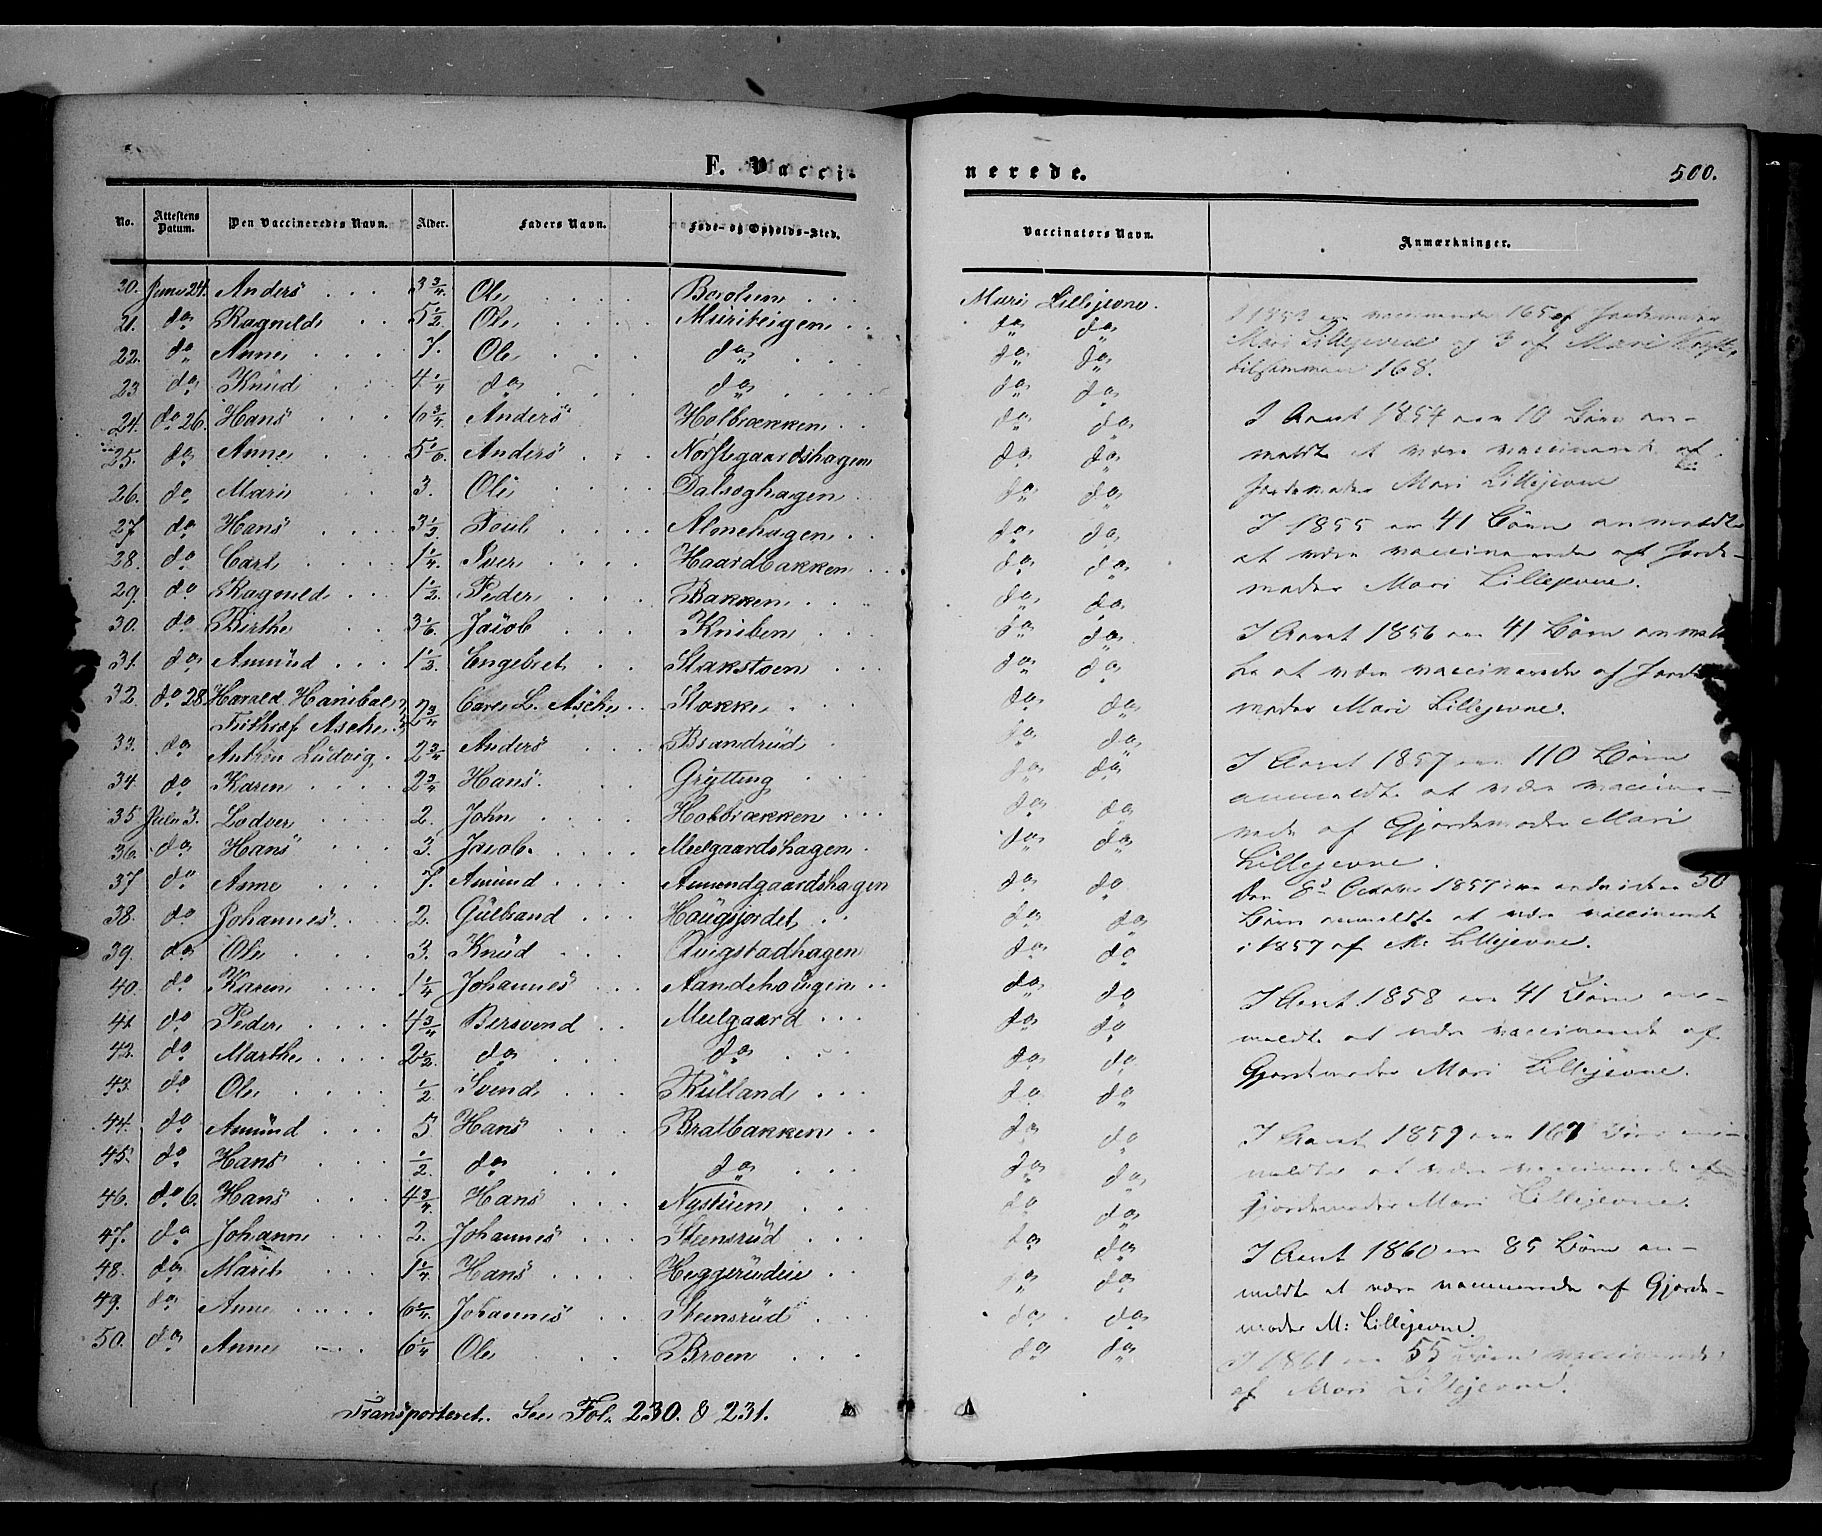 F. Vacci-
nerede.
500.
No. Attestens Datum. Den Vaccineredes Navn. Alder. Faders Navn. Føde- og Opholds-Sted. Vaccinators Navn. Anmærkninger.
20. Juni 24. Anders 3 3/4. Ole Mari Lillejevne.
21. do Ragnild 5 1/2 Ole Muriteigen do do
22. do Anne 7. Ole do do do
23 do Knud 4 1/4 do do do do
24. do 26. Hans 6 3/4. Anders Holbrækken do do
25. do Anne 5 1/6 Anders Norstegaardshagen do do
26. do Mari 3. Ole Dalsøghagen do do
27. do Hans 3 1/3 Poul Almehagen do do
28. do Carl 1 1/4. Iver Haardbakken do do
29. do Ragnild 1 1/2. Peder Bakken do do
30. do Birthe 3 1/6. Jacob Kniben do do
31. do Amund 1 1/3 Engebret Stakstoen do do
32. do 28 Harald Hanibal Frithiof Asche 2 3/4 Carl L. Asche Stokke do do
33. do Anthon Ludvig 2 3/4 Anders Brandrud do do
34. do Karen 2 3/4 Hans Grytting do do
35 Juli 3. Lodver 2. John Holbrækken do do
36. do Hans 3. Jacob Melgaardshagen do do
37 do Anne 7. Amund Amundgaardshagen do do
38. do Johannes 2. Gulbrand Haugjordet do do
39. do Ole 3. Knud Qvigstadhagen do do
40. do Karen 1 1/4 Johannes Aandehougen do do
41 do Peder 4 3/4 Bersvend Melgaard do do
42. do Marthe 2 1/2. do do do do
43. do Ole 1/2 Svend Rulland do do
44. do Amund 5 Hans Bratbakken do do
45. do Hans 1/2 do do do do
46. do 6. Hans 4 3/4. Hans Nystuen do do
47. do Johanne 2. Johannes Steensrud do do
48. do Marit 1 1/4 Hans Heggerudeie do do
49. do Anne 6 3/4. Johannes Steensrud do do
50. do Anne 6 1/4 Ole Broen do do
Transporteret. See Fol. 230. & 231.
I 1853 ere vaccinerede 165 af Jordemoder
Mari Lillejevne og 3 af Mari
tilsammen 168.
I Aaret 1854 ere 10 Børn an-
meldte at være vaccinerede af
Jordemoder Mari Lillejevne
I 1855 er 41 Børn anmeldte
at være vaccinerede af Jorde-
moder Mari Lillejevne.
I Aaret 1856 ere 41 Børn anmeld-
te at være vaccinerede af Jorde
moder Mari Lillejevne.
I Aaret 1857 ere 110 Børn
anmeldte at være vaccine-
rede af Gjordemoder Mari
Lillejevne.
Den 8d October 1857 ere endvidere 50
Børn anmeldte at være vaccinerede
i 1857 af M: Lillejevne.
I Aaret 1858 ere 41 Børn an-
meldte at være vaccinerede af
Gjordemoder Mari Lillejevne.
I Aaret 1859 ere 167 Børn an-
meldte at være vaccinerede af
Gjordemoder Mari Lillejevne.
I Aaret 1860 ere 85 Børn an-
meldte at være vaccinerede af Gjorde-
moder M: Lillejevne.
I 1861 ere 55 Børn vaccinerede
af Mari Lillejevne.